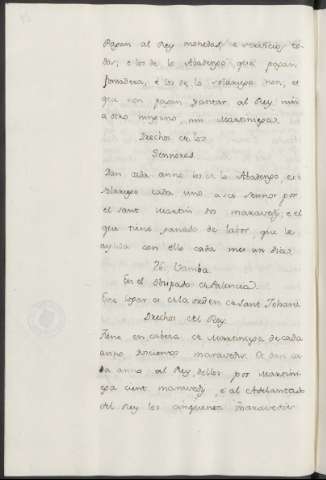 Pagan al Rey monedas, e servicios to-
dos; e los de lo Abadengo que pagan
fonsadera, e los de lo solariego non, et
que non pagan yantar al Rey nin
a otro ninguno, nin Martiniega
Derechos de los
Sennores
Dan cada anno los de lo Abadengo, e de
solariego cada uno a su Sennor por
el sant Martin dos maravedis; e el
que tiene ganado de labor, que le
ayuda con ello cada mes un dia.
76 Vamba
En el Obispado de Palencia
Este logar es de la orden de Sant Johan
Derechos del Rey
Tiene en cabeza de Martiniega de cada
anno docientos maravedis. Et dan ca-
da anno al Rey dellos por Martini-
ega cient maravedis, e al Adelantado
del Rey los cinquenta maravedis